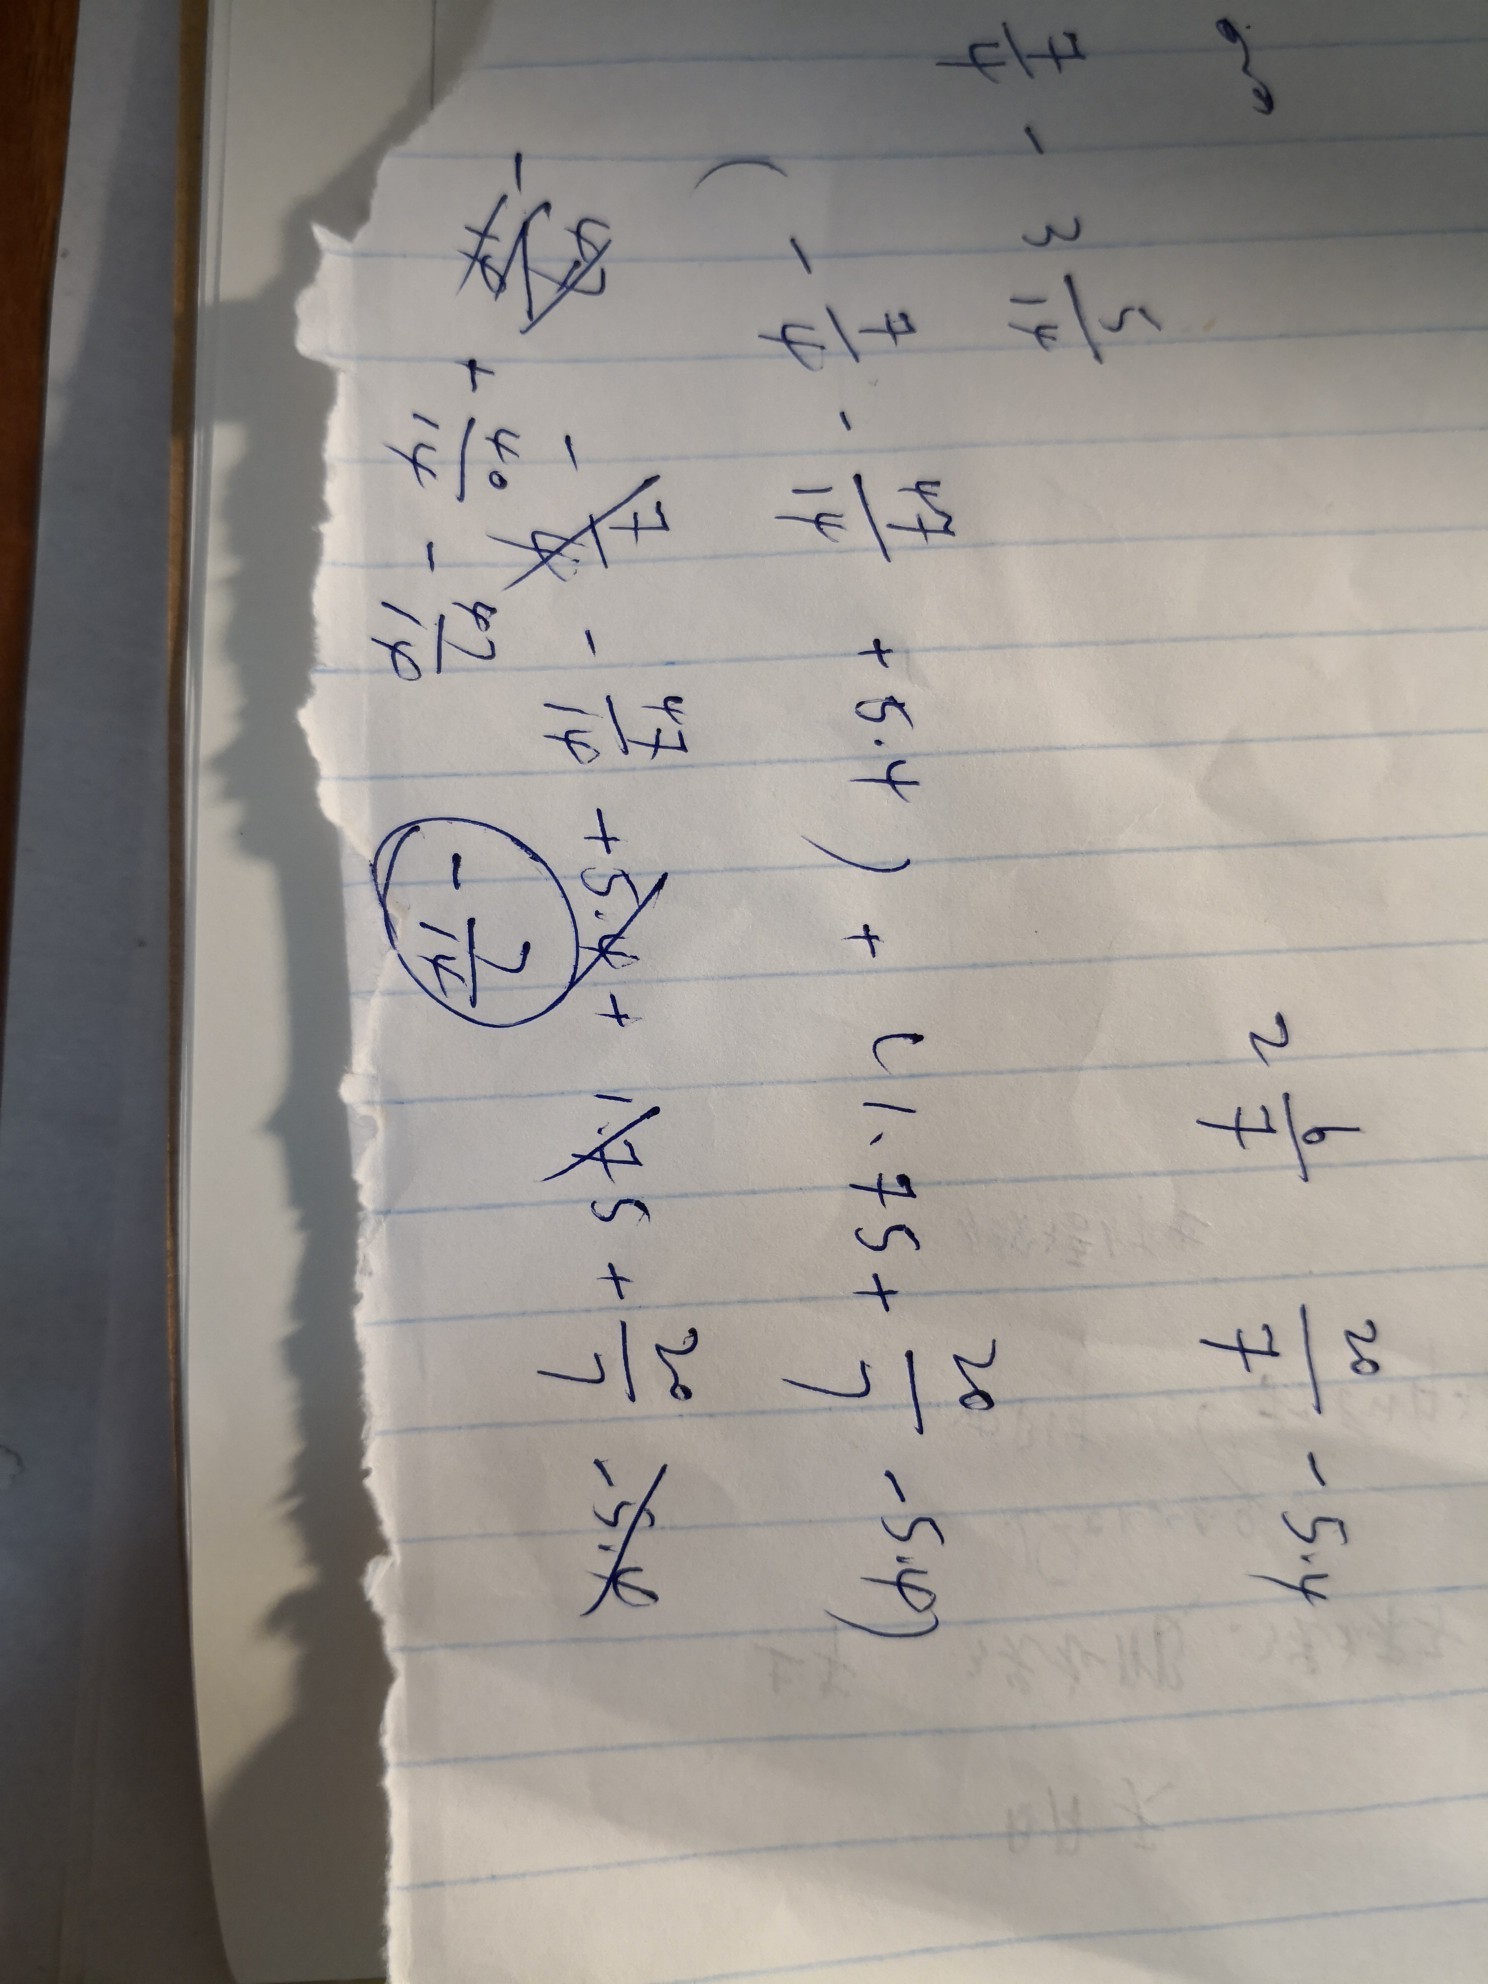 7/4 - 3 5/14
2 6/7 20/7 - 5.4
( - 7/4 - 47/14 + 5.4 ) + ( 1.75 + 20/7 - 5.4 )
- 7/4 - 47/14 + 5.4 + 1.75 + 20/7 - 5.4
+ 40/14 - 47/14 - 7/14